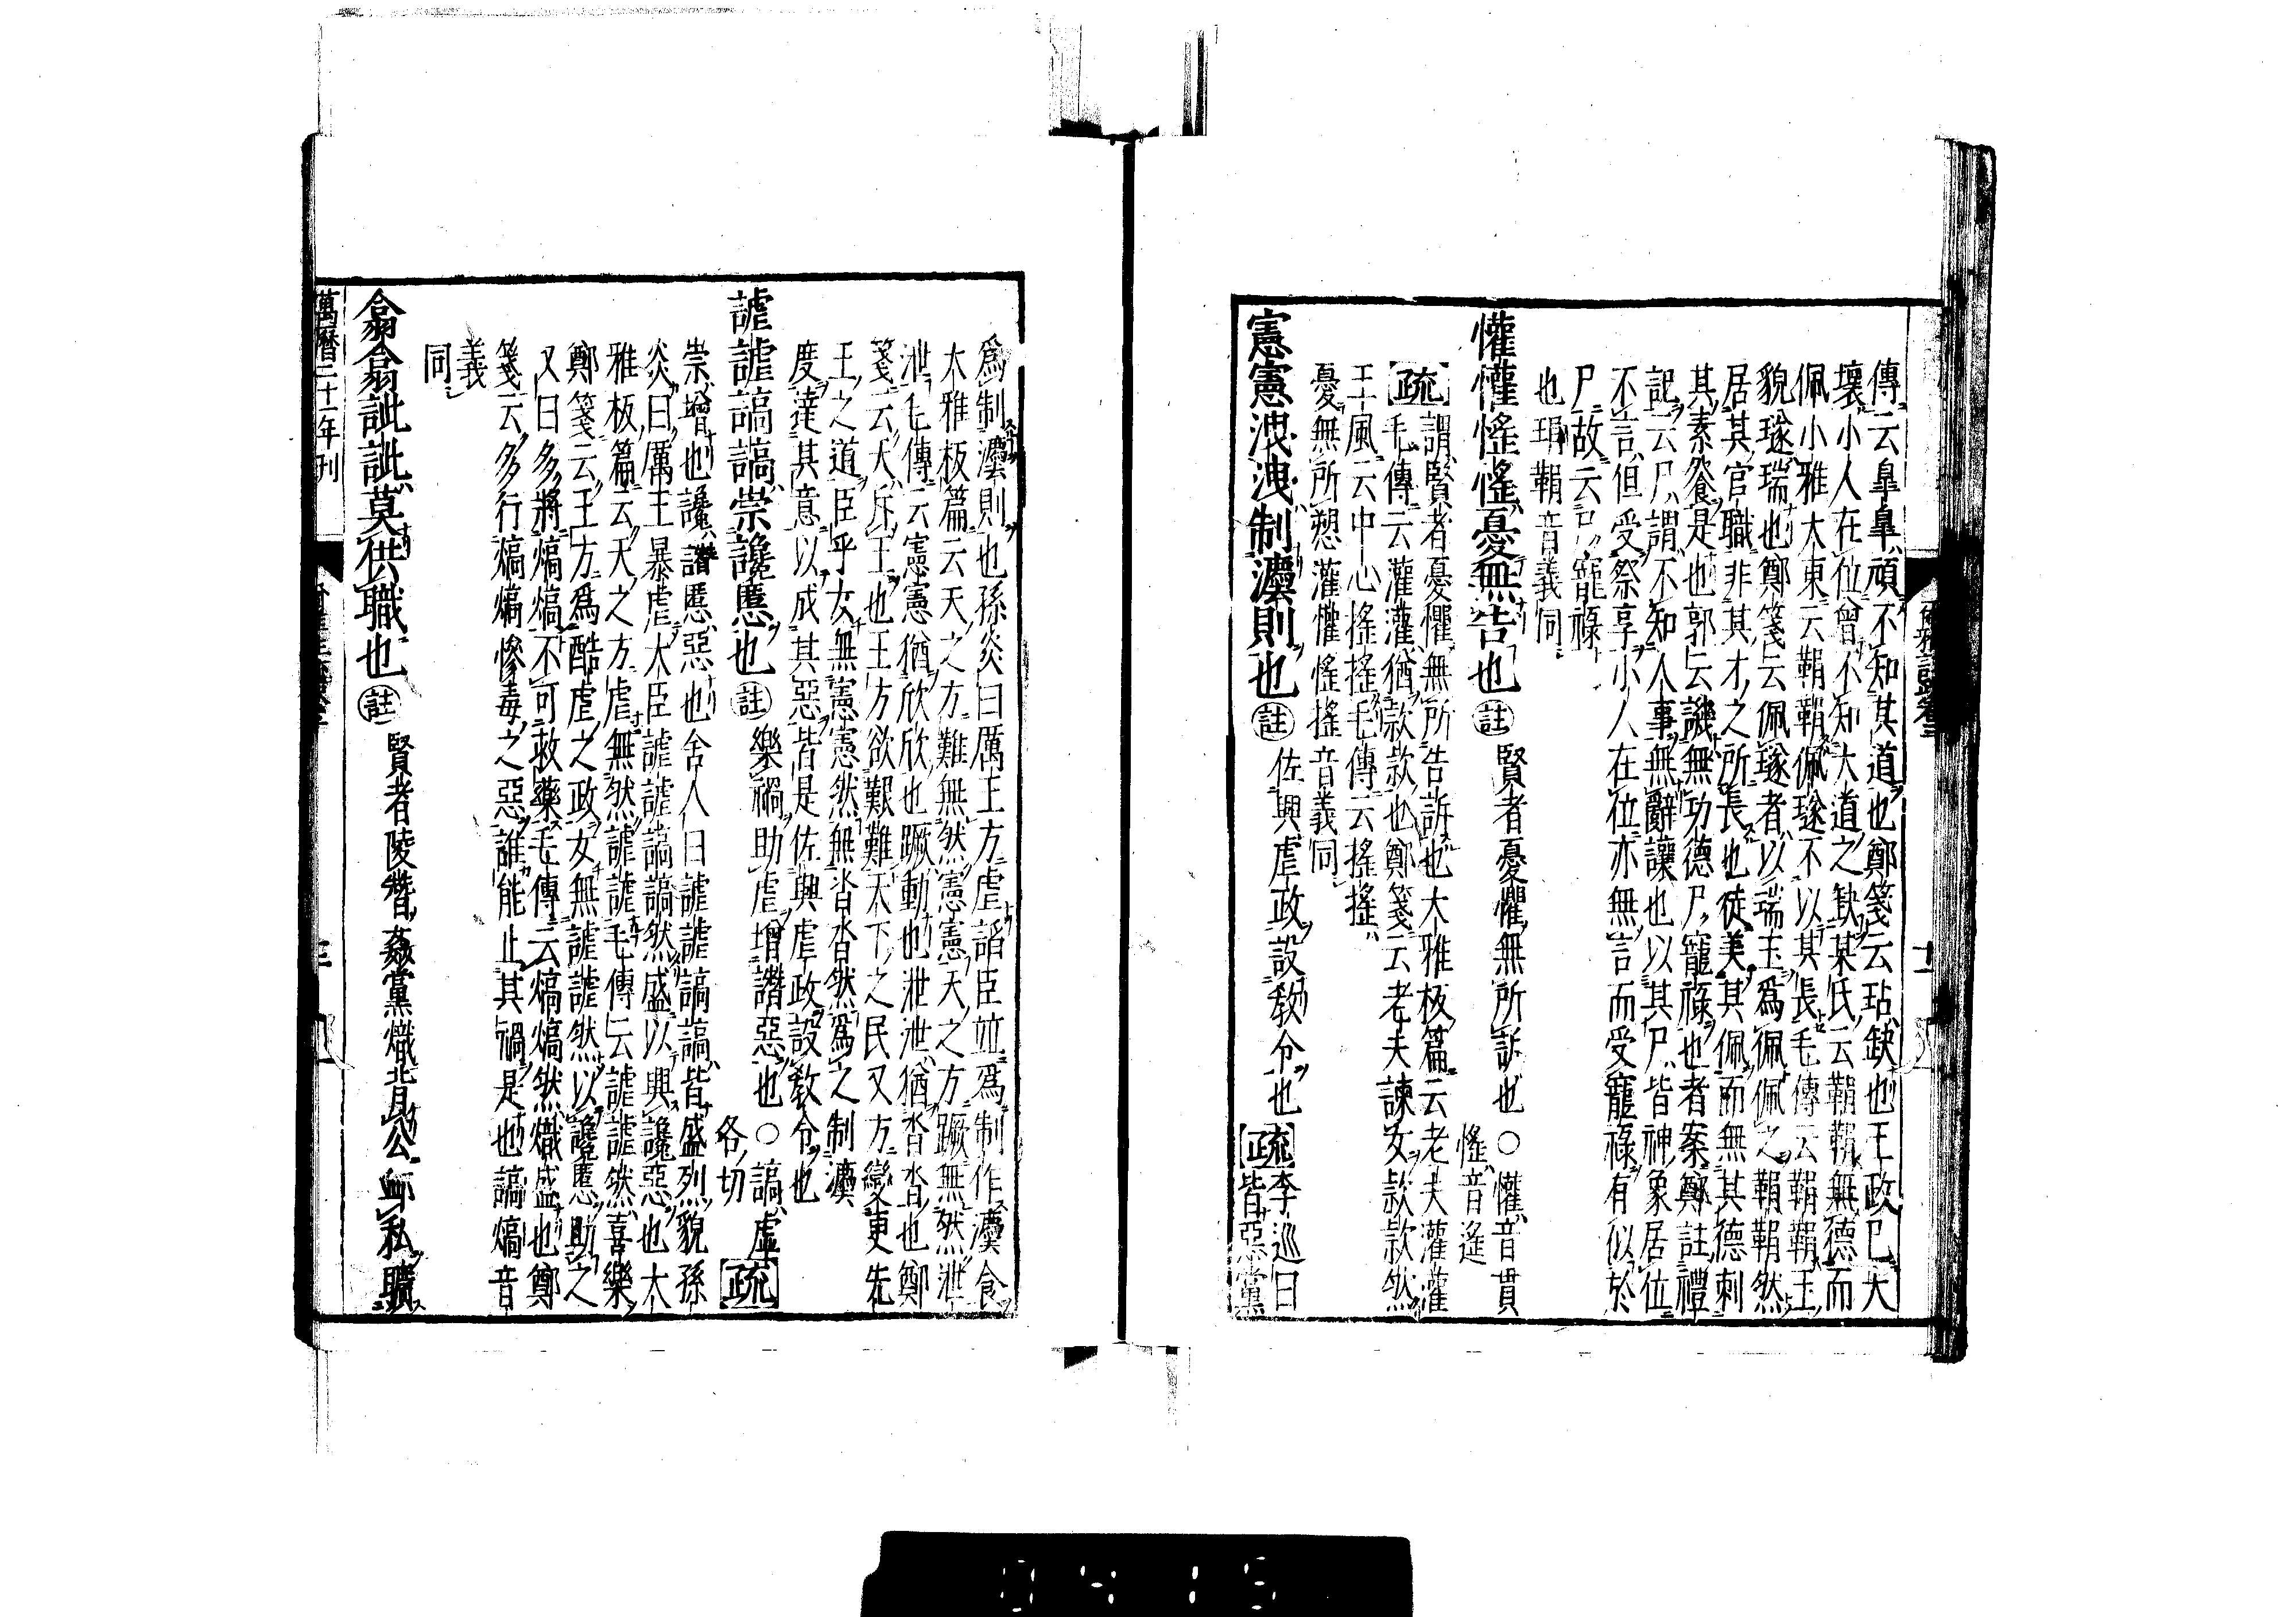 爾雅註疏卷三
傳云臯臯頑不知其道也鄭箋云玷缺也王政巳大
壞小人在位曾不知大道之缺某氏云鞙鞙無德而
佩小雅大東云鞙鞙佩璲不以其長毛傳云鞙鞙玉
貌璲瑞也鄭箋云佩璲者以瑞玉爲佩佩之鞙鞙然
居其官職非其才之所長也徒美其佩而無其德刺
其素飱是也郭云譏無功德尸寵祿也者案鄭註禮
記云尸謂不知人事無辭讓也以其尸皆神象居位
不言但受祭享小人在位亦無言而受寵祿有似於
尸故云尸寵祿
也琄鞙音義同
懽懽愮愮憂無告也註賢者憂懼無所訴也○懽音貫
愮音遙
疏謂賢者憂懼無所告訴也大雅板篇云老夫灌灌
毛傳云灌灌猶款款也鄭箋云老夫諫女款款然
王風云中心搖搖毛傳云搖搖
憂無所愬灌懽愮搖音義同
憲憲洩洩制灋則也註佐興虐政設敎令也疏李巡曰
皆惡黨
爲制灋則也孫炎曰厲王方虐諂臣並爲制作灋令
大雅板篇云天之方難無然憲憲天之方蹶無然泄
泄毛傳云憲憲猶欣欣也蹶動也泄泄猶沓沓也鄭
箋云天斥王也王方欲艱難天下之民又方變更先
王之道臣乎女無憲憲然無沓沓然爲之制灋
度達其意以成其惡皆是佐興虐政設敎令也
謔謔謞謞崇讒慝也註樂禍助虐增譖惡也○謞虛
各切疏
崇增也讒譖慝惡也舍人曰謔謔謞謞皆盛烈貌孫
炎曰厲王暴虐大臣謔謔謞謞然盛以興讒惡也大
雅板篇云天之方虐無然謔謔毛傳云謔謔然喜樂
鄭箋云王方爲酷虐之政女無謔謔然以讒慝助之
又曰多將熇熇不可救藥毛傳云熇熇然熾盛也鄭
箋云多行熇熇慘毒之惡誰能止其禍是也謞熇音
義
同
翕翕訿訿莫供職也註賢者陵替姦黨熾背公卹私曠
萬曆二十一年刊